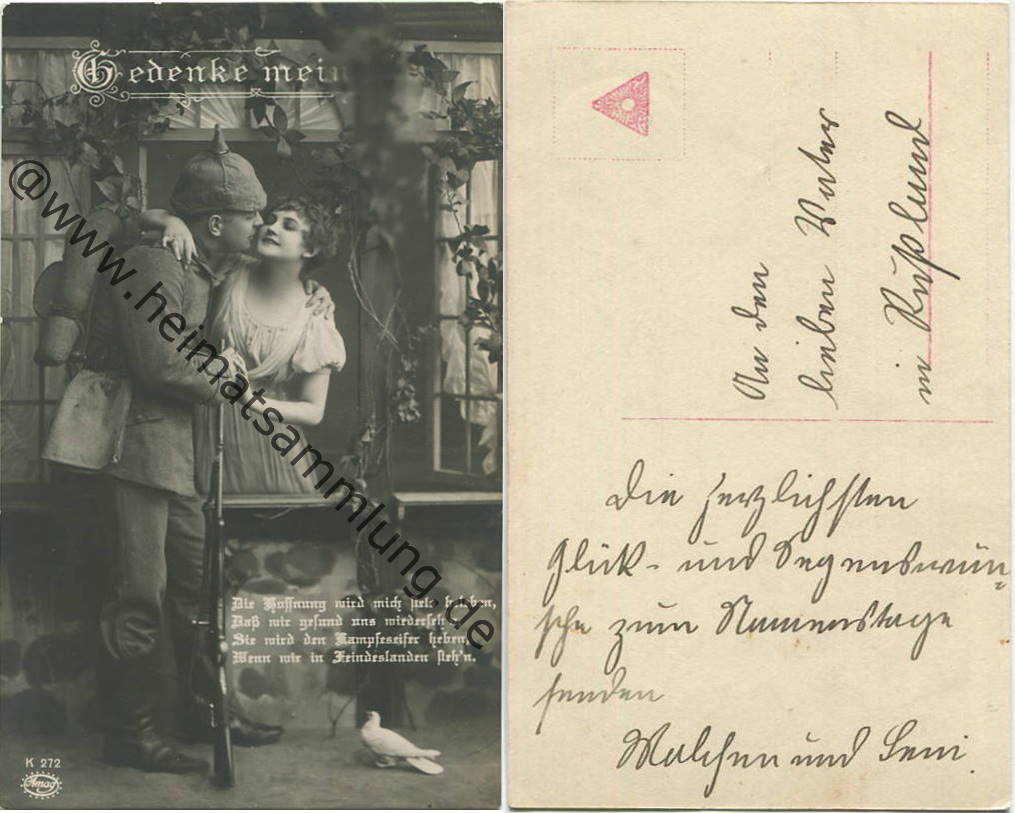 Gedenke mein
@www.heimatsammlung.de
Die Hoffnung wird mich stets beleben,
Daß wir gesund uns wiederseh'
Sie wird den Kampfeseifer heben,
Wenn wir in Feindeslanden steh'n.
K 272
Amag
An den
lieben Vater
in Rußland
Die herzlichsten
Glück- und Segenswün-
sche zum Namenstage
senden
Malchen und Leni.